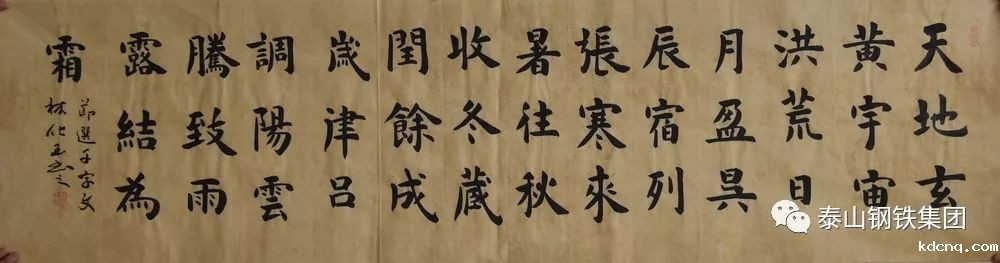 天地玄
黄宇宙
洪荒日
月盈昃
辰宿列
張寒來
暑往秋
收冬藏
閏餘成
歲律吕
調陽雲
騰致雨
露結為
霜
節選千字文
林化玉书之
泰山钢铁集团
kdcnq.com/